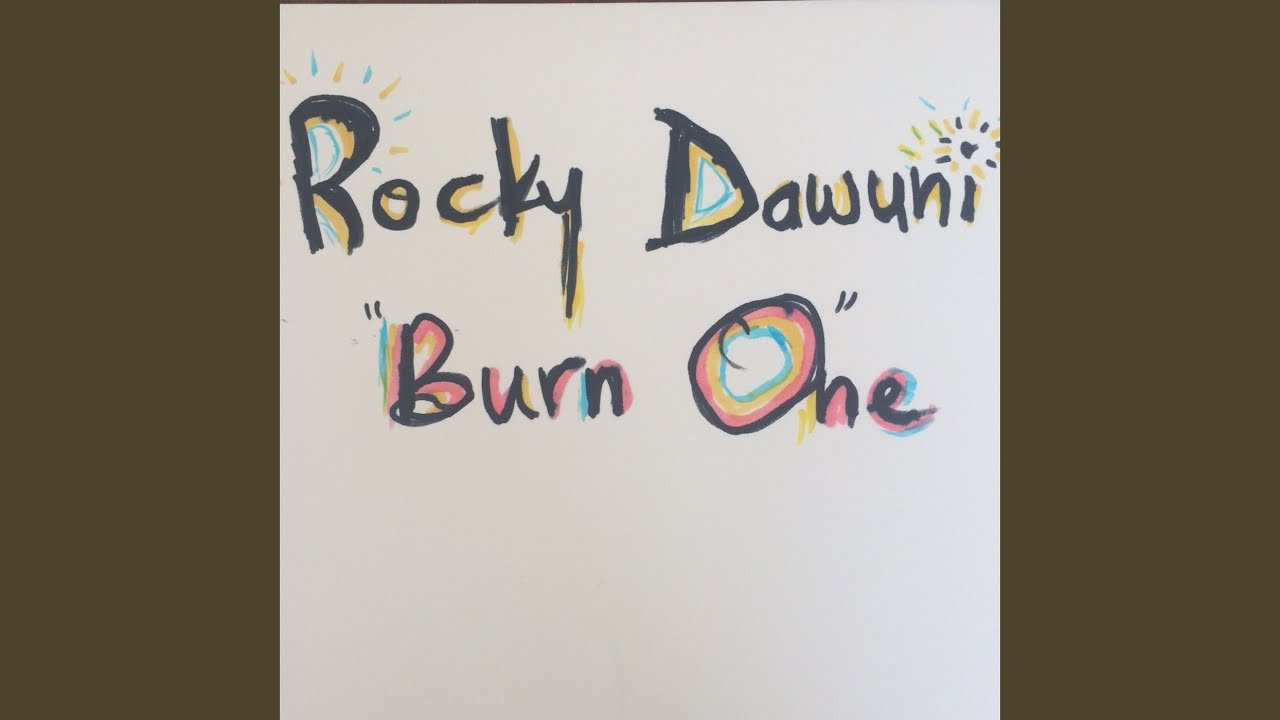 Rocky Dawuni
"Burn One"